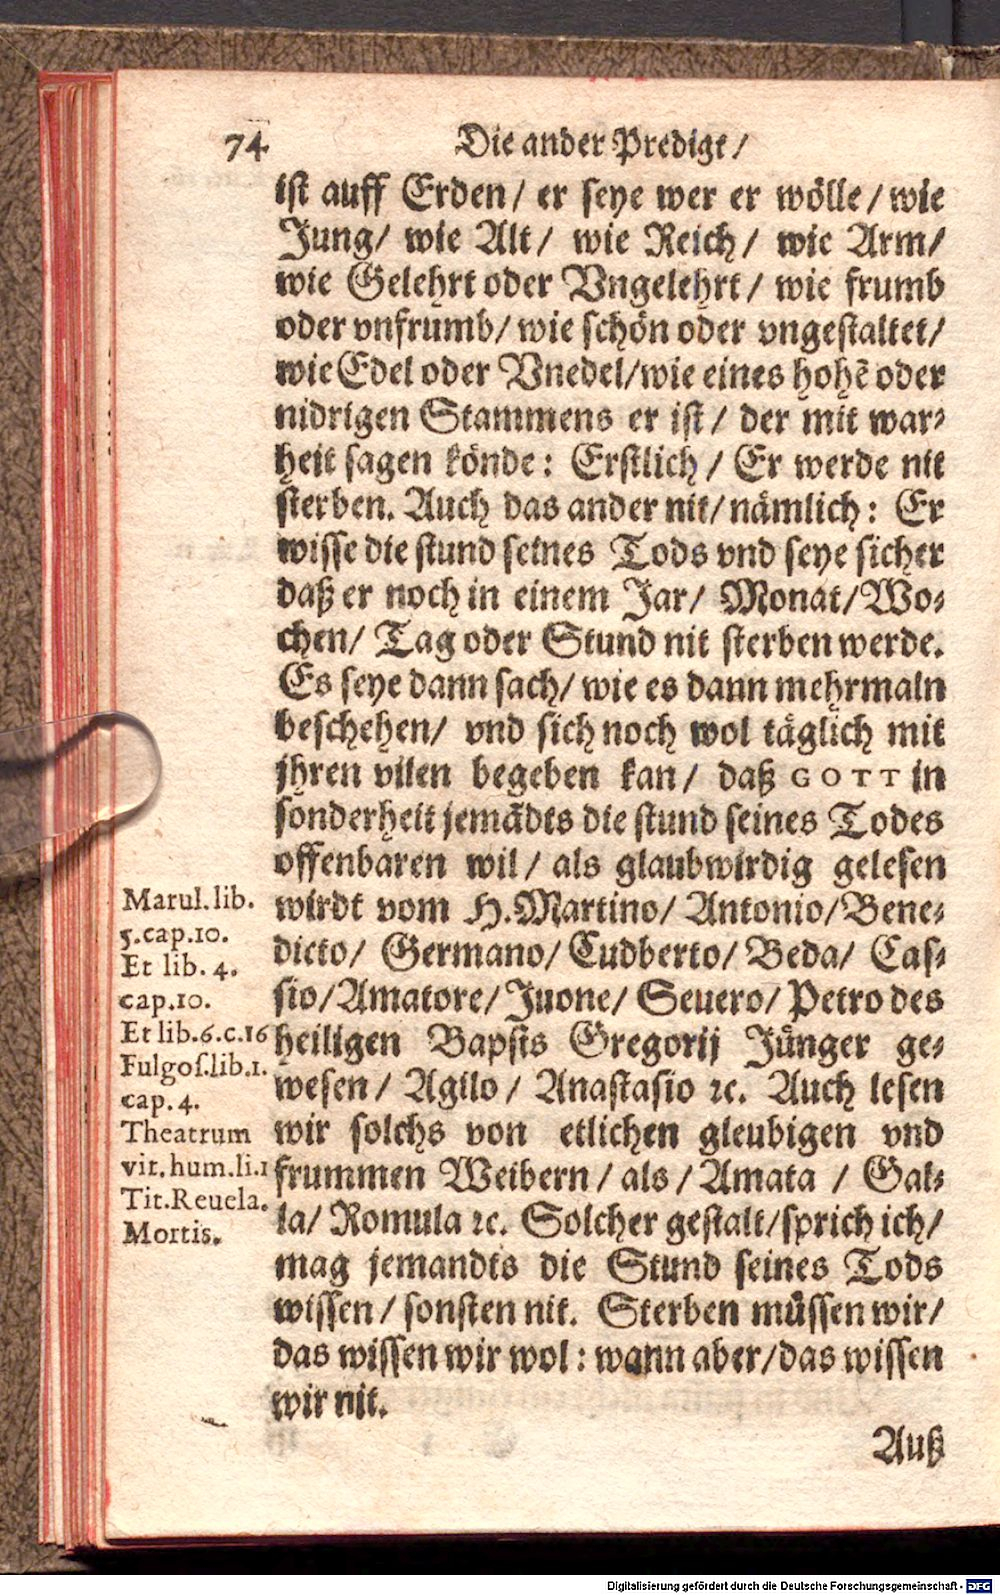 74 Die ander Predigt /
ist auff Erden / er seye wer er wölle / wie
Jung / wie Alt / wie Reich / wie Arm /
wie Gelehrt oder Vngelehrt / wie frumb
oder vnfrumb / wie schön oder vngestaltet /
wie Edel oder Vnedel / wie eines hohẽ oder
nidrigen Stammens er ist / der mit war-
heit sagen könde : Erstlich / Er werde nit
sterben. Auch das ander nit / nämlich : Er
wisse die stund seines Tods vnd seye sicher
daß er noch in einem Jar / Monat / Wo-
chen / Tag oder Stund nit sterben werde.
Es seye dann sach / wie es dann mehrmaln
beschehen / vnd sich noch wol täglich mit
jhren vilen begeben kan / daß GOTT in
sonderheit jemãdts die stund seines Todes
offenbaren wil / als glaubwirdig gelesen
wirdt vom H. Martino / Antonio / Bene-
dicto / Germano / Cudberto / Beda / Cas-
sio / Amatore / Juone / Seuero / Petro des
heiligen Bapsts Gregorij Jünger ge-
wesen / Agilo / Anastasio ꝛc. Auch lesen
wir solchs von etlichen gleubigen vnd
frummen Weibern / als / Amata / Gal-
la / Romula ꝛc. Solcher gestalt / sprich ich /
mag jemandts die Stund seines Tods
wissen / sonsten nit. Sterben müssen wir /
das wissen wir wol : wann aber / das wissen
wir nit.
Auß
Marul. lib.
5. cap. 10.
Et lib. 4.
cap. 10.
Et lib. 6. c. 16
Fulgos. lib. 1.
cap. 4.
Theatrum
vit. hum. li. 1
Tit. Reuela.
Mortis.
Digitalisierung gefördert durch die Deutsche Forschungsgemeinschaft - DFG